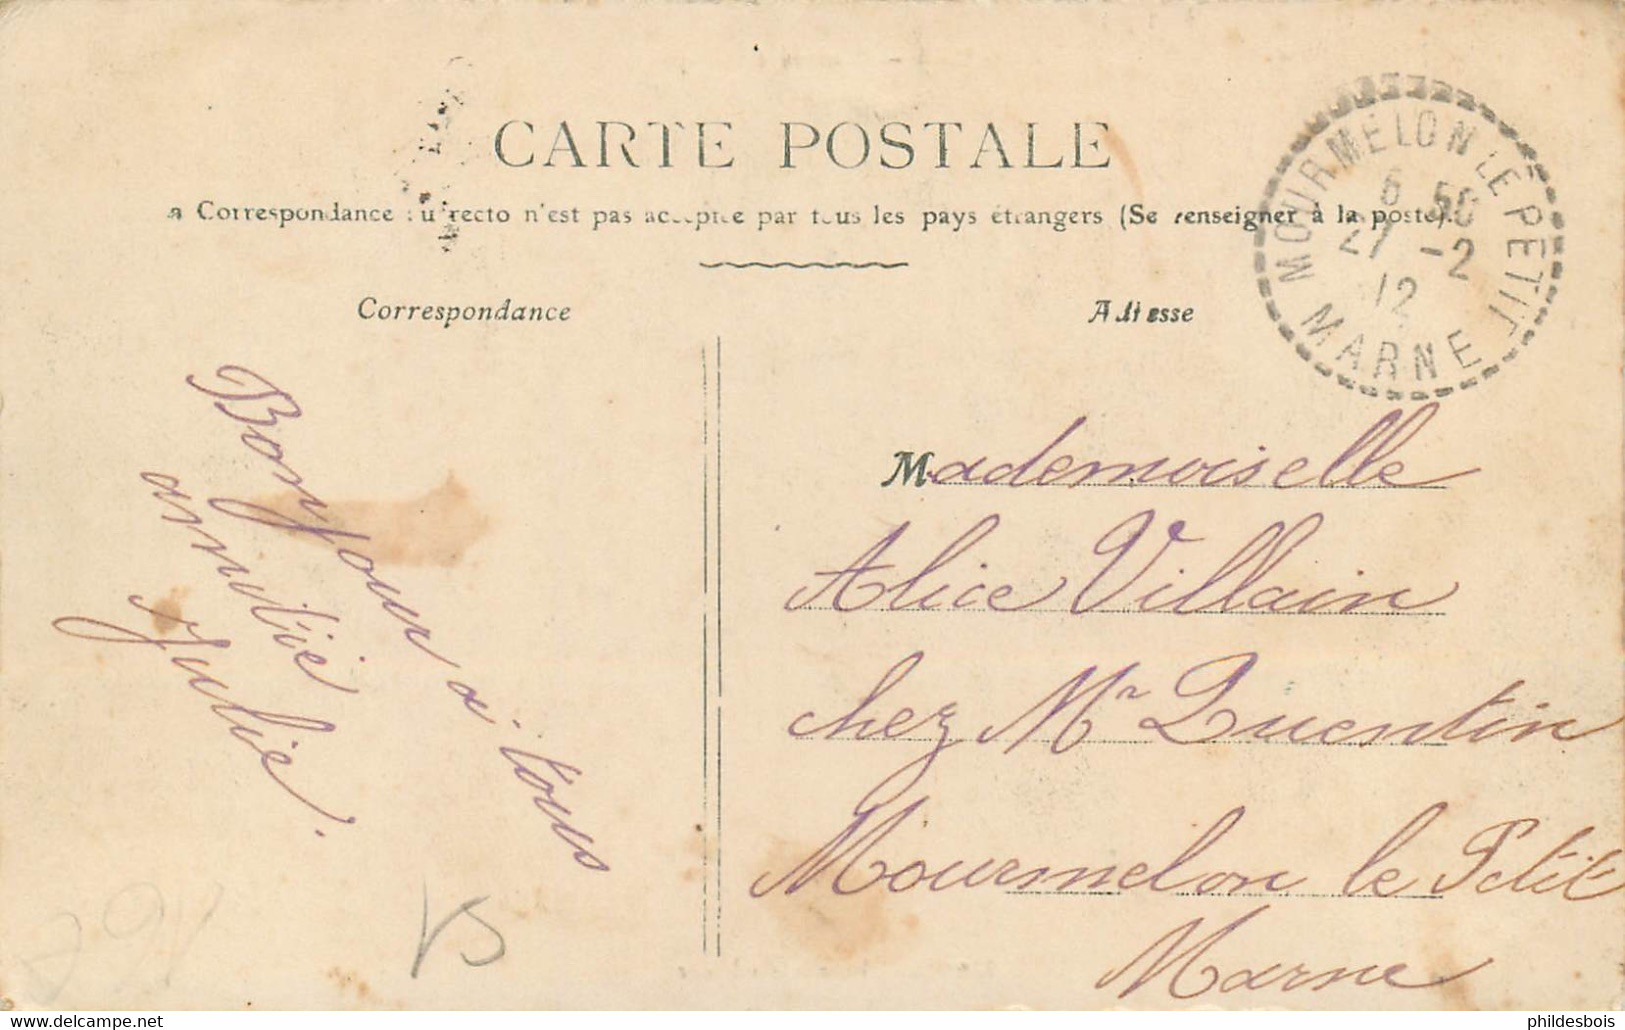 CARTE POSTALE
La Correspondance au recto n'est pas acceptée par tous les pays étrangers (Se renseigner à la poste).
Correspondance
Adresse
MOURMELON LE PETIT
6 50
27 -2
12
MARNE
Bonjour à tous
amitié
Julie.
Mademoiselle
Alice Villain
chez Mr Quentin
Mourmelon le Petit
Marne
phildesbois